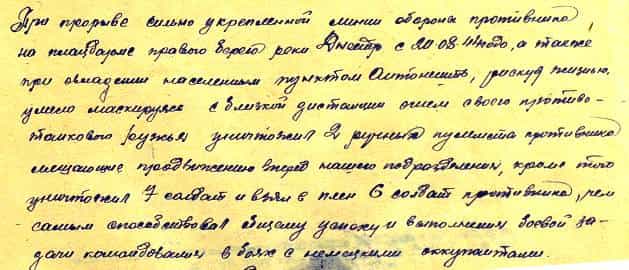 При прорыве сильно укрепленной линии обороны противника
на плацдарме правого берега реки Днестр с 20.08.44 года, а также
при овладении населенным пунктом Онтонешть, рискуя жизнью,
умело маскируясь с близкой дистанции огнем своего противо-
танкового ружья уничтожил 2 ручных пулемета противника
мешающие продвижению вперед нашего подразделения, кроме того
уничтожил 7 солдат и взял в плен 6 солдат противника, чем
самым способствовал общему успеху и выполнения боевой за-
дачи командования в боях с немецкими оккупантами.